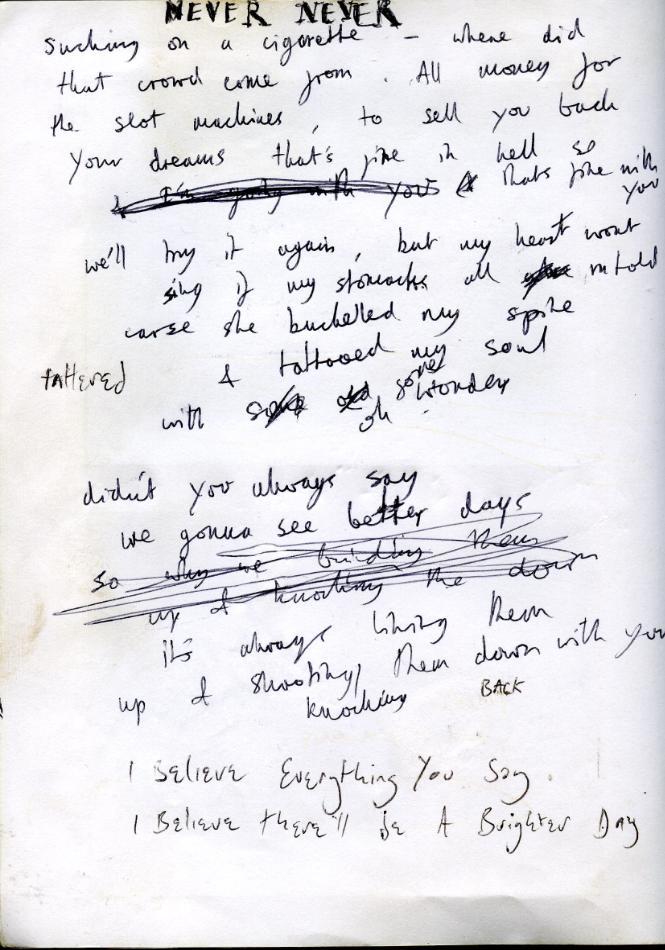 NEVER NEVER
sucking on a cigarette - where did
that crowd come from. All money for
the slot machines, to sell you back
your dreams that's fine in hell so
I'm going with you & thats fine with
you
we'll try it again, but my heart wont
sing if my stomachs all untold
carse she buckelled my spine
& tattooed my soul
tattered
with some
oh wonder
didn't you always say
we gonna see better days
so why we building them
up & knocking the down
its always lining them
up & shooting them down with you
knocking BACK
I Believe Everything You Say.
I Believe there'll be A Brighter Day